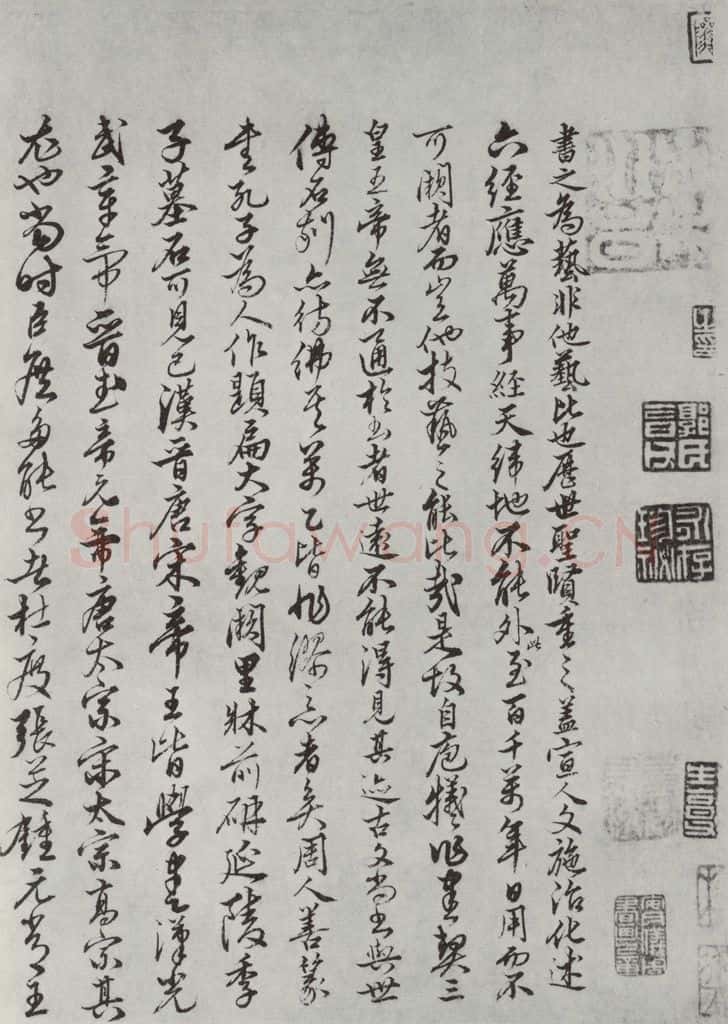 書之為藝非他藝比也歷世聖賢重之蓋宣人文施治化述
六經應萬事經天緯地不能外此至百千萬年日用而不
可闕者而豈他技藝之能比哉是故自庖犧作書契三
皇五帝無不通於書者世遠不能得見其迹古文尚書與世
傳石刻亦彷彿其萬乙皆非繆之者矣周人善篆
書孔子為人作題扁大字觀闕里牀前研延陵季
子墓石可見已漢晉唐宋帝王皆學書漢光
武章帝晉武帝元帝唐太宗宋太宗高宗其
尤也當時臣庶多能書者杜度張芝鍾元常王
Shufawang.CN